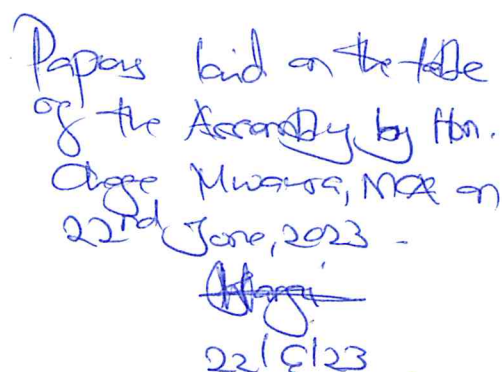 Papers laid on the table
of the Assembly by Hon.
Mwaura, MCA on
22nd June, 2023 -
22/6/23